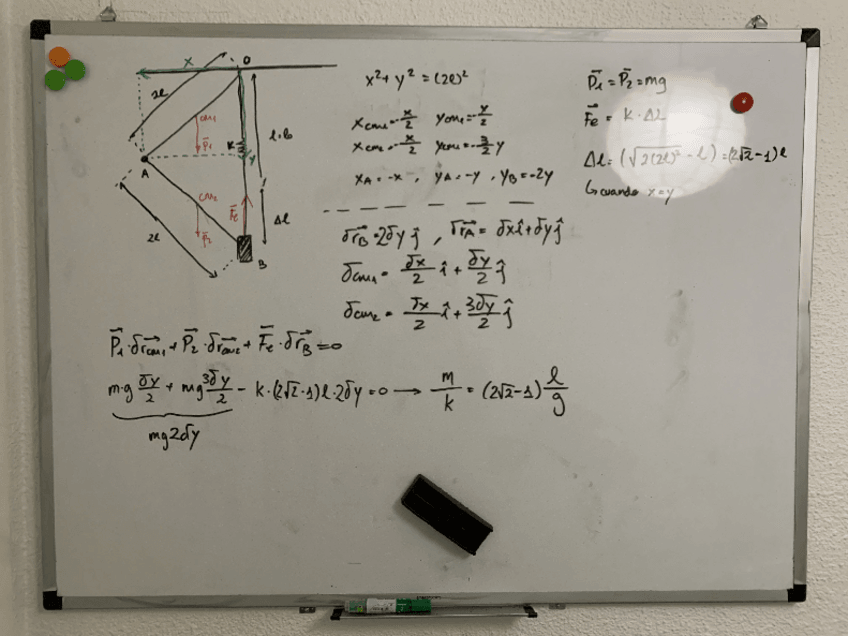 x
O
2l
cm₁
P⃗₁
K
y
l=l₀
A
cm₂
P⃗₂
F⃗e
Δl
2l
B
x² + y² = (2l)²
x_cm₁ = -x/2 y_cm₁ = -y/2
x_cm₂ = -x/2 y_cm₂ = -3/2 y
x_A = -x , y_A = -y , y_B = -2y
δr⃗_B = 2δy ĵ , δr⃗_A = δx î + δy ĵ
δcm₁ = δx/2 î + δy/2 ĵ
δcm₂ = δx/2 î + 3δy/2 ĵ
P⃗₁ = P⃗₂ = mg
F⃗e = K · Δl
Δl = (√2(2l)² - l) = (2√2 - 1) l
↳ cuando x = y
P⃗₁ · δr⃗cm₁ + P⃗₂ · δr⃗cm₂ + F⃗e · δr⃗_B = 0
m·g δy/2 + mg 3δy/2 - K·(2√2-1) l · 2δy = 0 → m/k = (2√2 - 1) l/g
mg2δy